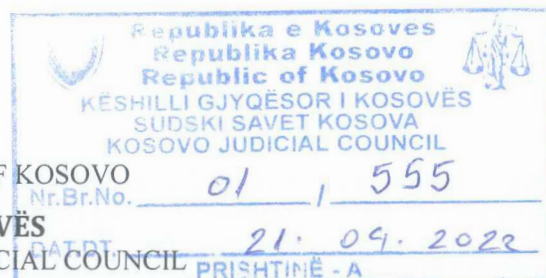 Republika e Kosoves
Republika Kosovo
Republic of Kosovo
KËSHILLI GJYQËSOR I KOSOVËS
SUDSKI SAVET KOSOVA
KOSOVO JUDICIAL COUNCIL
F KOSOVO
Nr.Br.No. 01 / 555
VËS
DAT.DT. 21. 04. 2022
CIAL COUNCIL
PRISHTINË - A